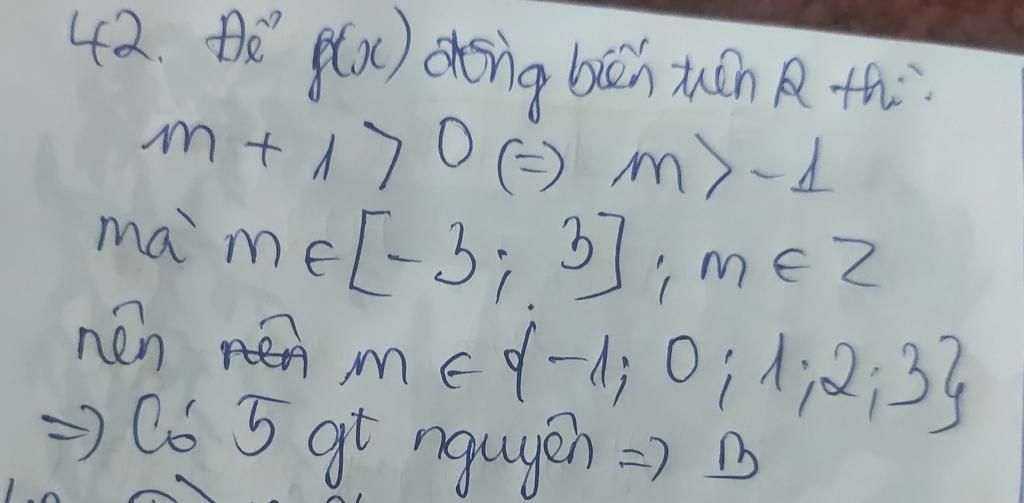 42. Để f(x) đồng biến trên R thì:
m + 1 > 0 (=) m > -1
mà m ∈ [-3; 3] ; m ∈ Z
nên nên m ∈ {-1; 0; 1; 2; 3}
=) Có 5 gt nguyên =) B